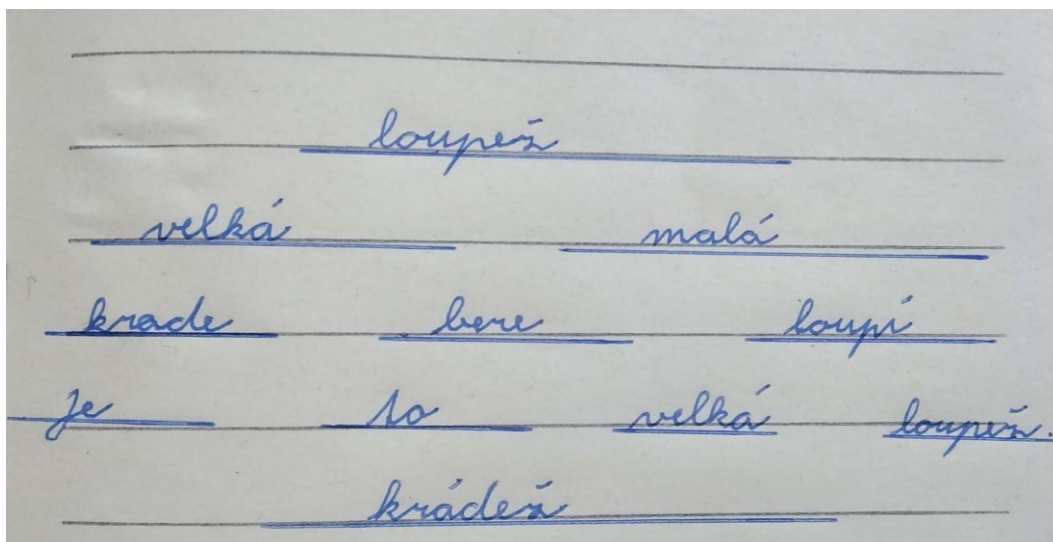 loupež
velká malá
krade bere loupí
je to velká loupež.
krádež